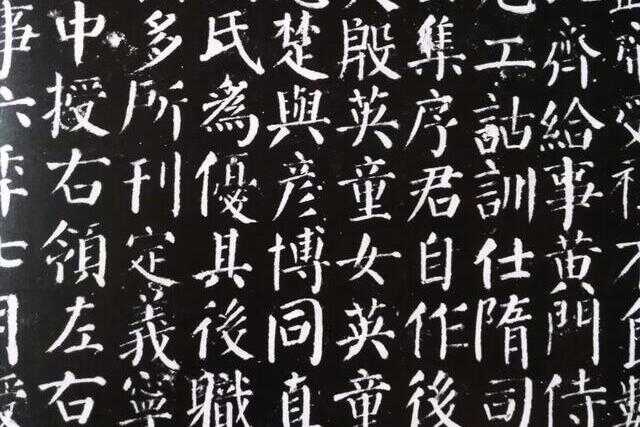 齊給事黃門侍
工詁訓仕隋司
集序君自作後
殷英童女英童
楚與彦博同直
氏爲優其後職
多所刊定義寧
中授右領左右
事六年七月授